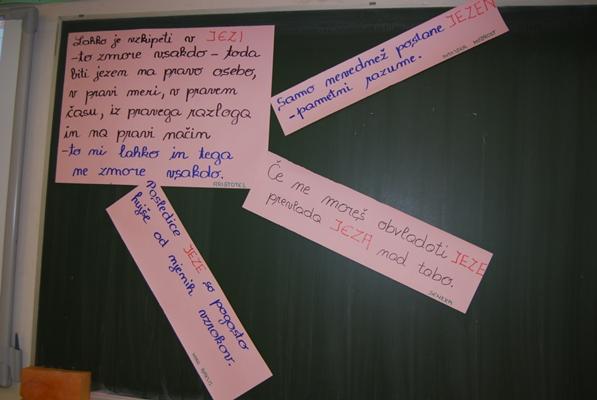 Lahko je vzkipeti v JEZI
-to zmore vsakdo - toda
biti jezen na pravo osebo,
v pravi meri, v pravem
času, iz pravega razloga
in na pravi način
-to ni lahko in tega
ne zmore vsakdo.
ARISTOTEL
Samo nevednež postane JEZEN
-pametni razume.
MODROST
Če ne moreš obvladati JEZE
prevlada JEZA nad tabo.
SENEKA
Posledice JEZE so pogosto
hujše od njenih vzrokov.